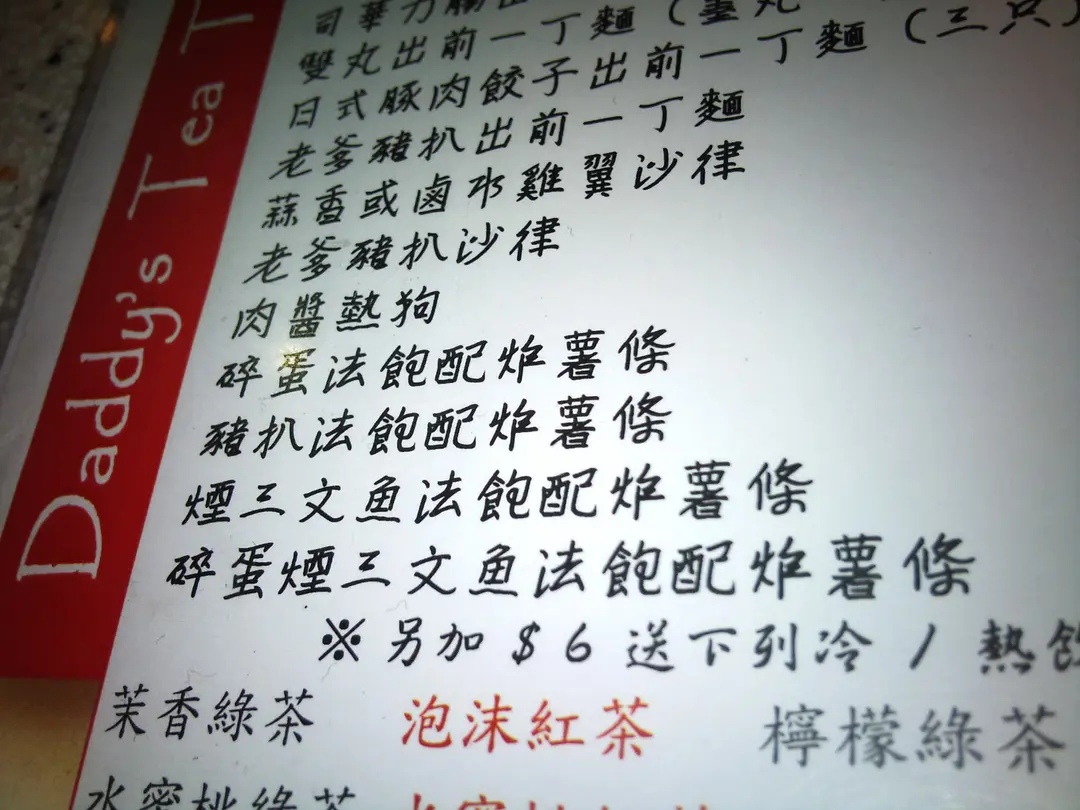 Daddy's Tea T
司華力腸出
雙丸出前一丁麵（墨丸
日式豚肉餃子出前一丁麵（三只）
老爹豬扒出前一丁麵
蒜香或鹵水雞翼沙律
老爹豬扒沙律
肉醬熱狗
碎蛋法飽配炸薯條
豬扒法飽配炸薯條
煙三文魚法飽配炸薯條
碎蛋煙三文魚法飽配炸薯條
※另加$6送下列冷/熱飲
茉香綠茶 泡沫紅茶 檸檬綠茶
水蜜桃綠茶 水蜜桃紅茶